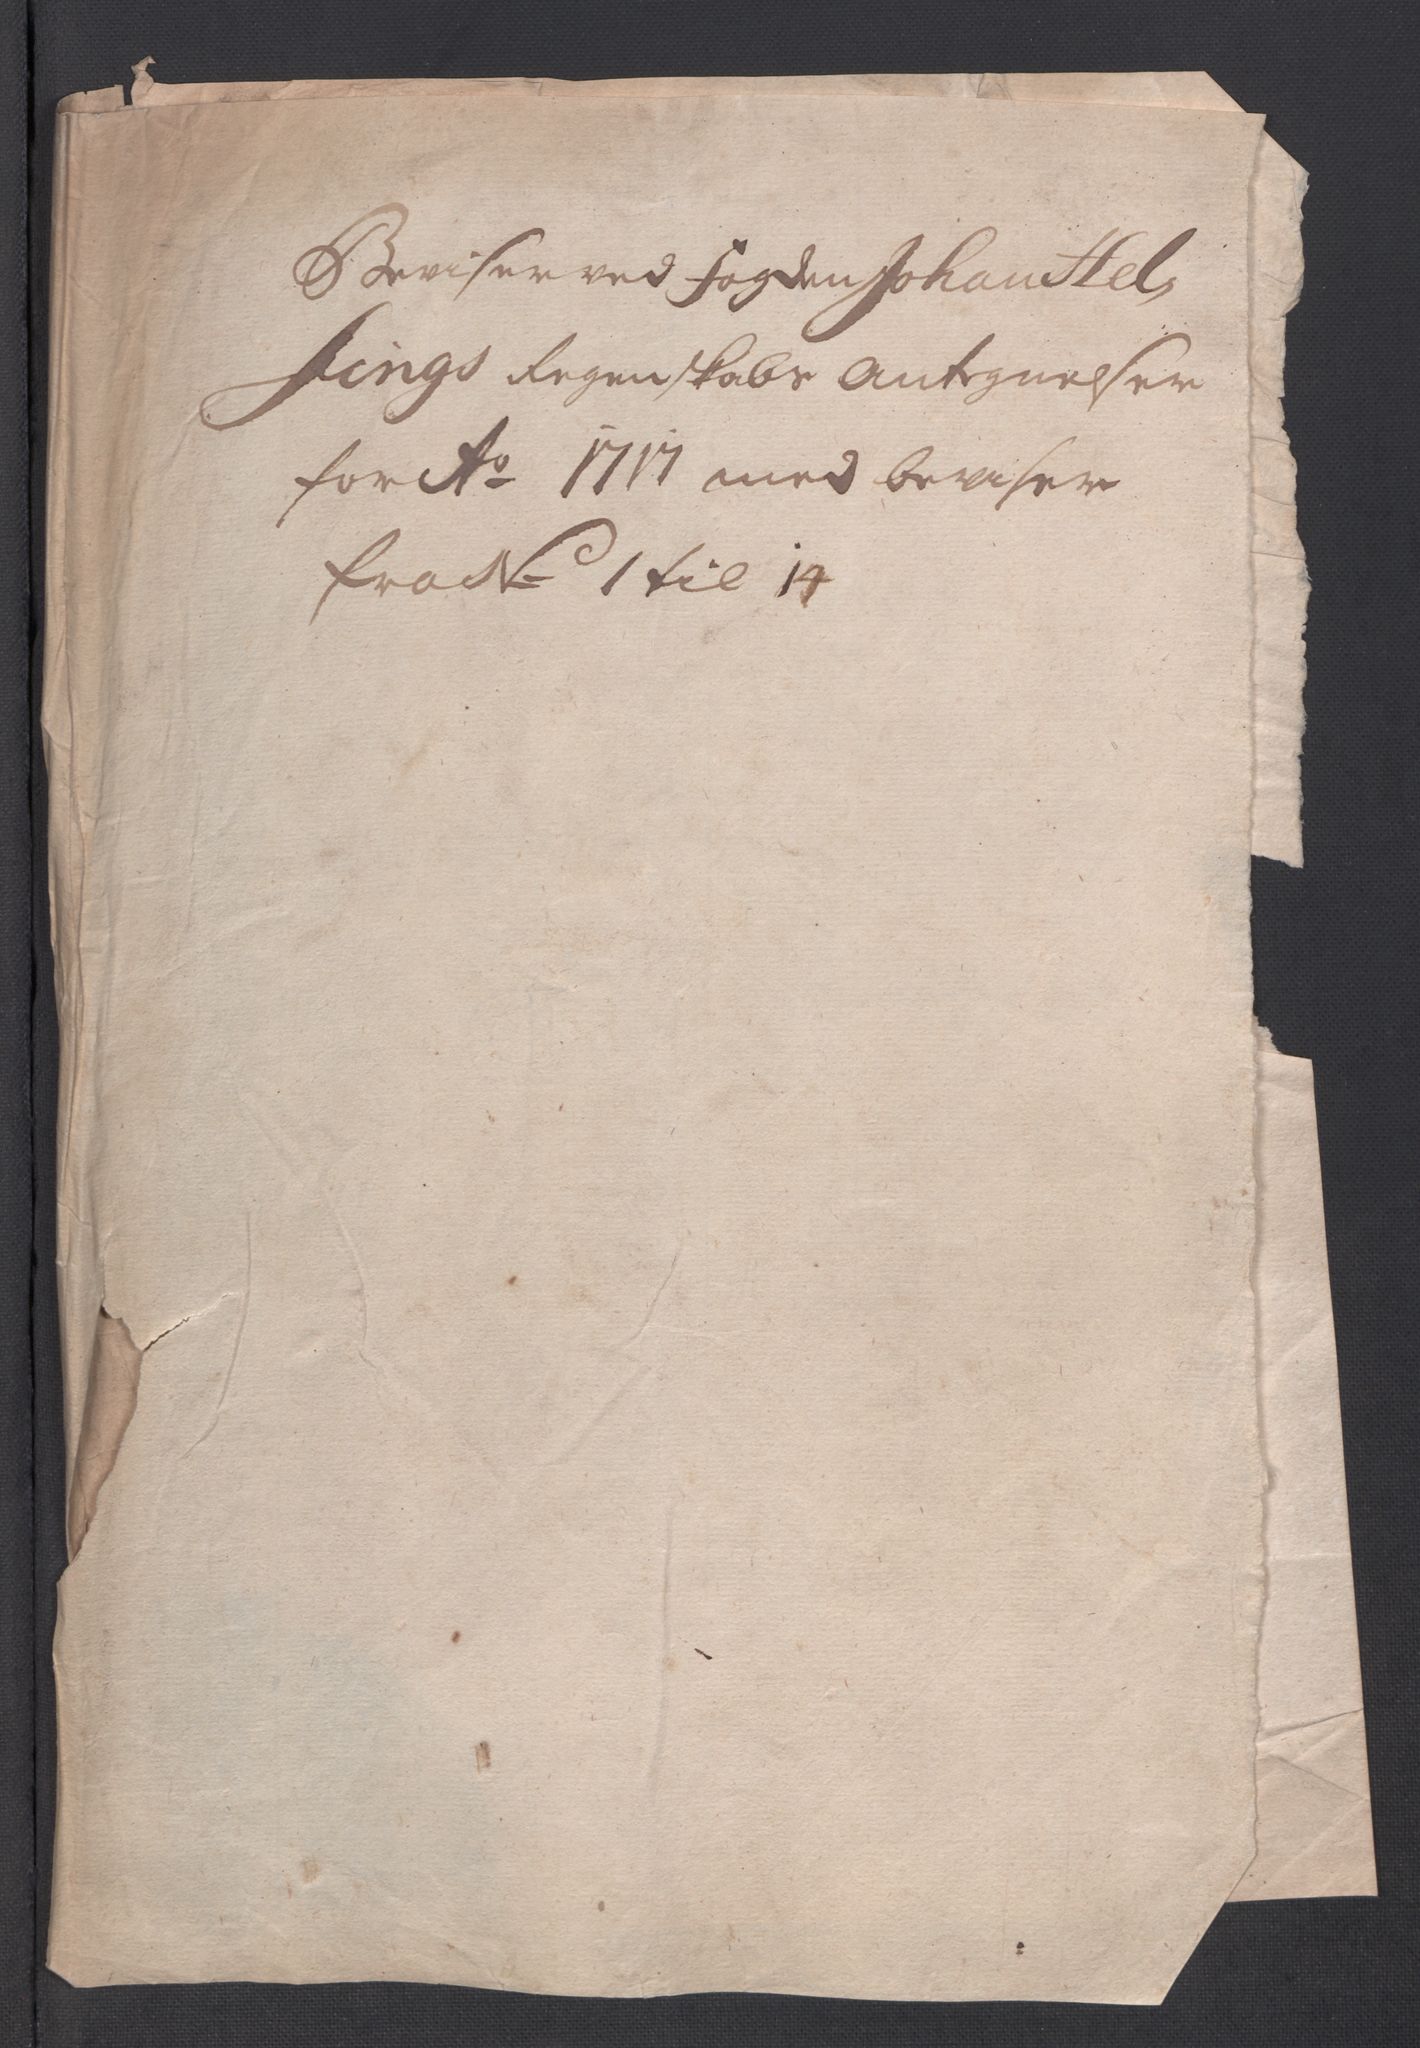 Beviser ved fogden Johan Hel,
sings Regenskabs Antegnelser
for Ao 1717 med beviser
fra No 1 til 14